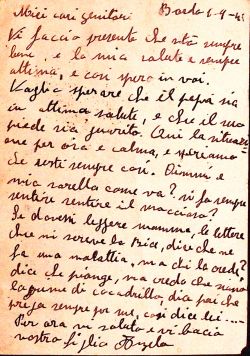 Miei cari genitori
Vi faccio presente che sto sempre
bene, e la mia salute e sempre
ottima, e così spero in voi.
Voglio sperare che il papà sia
in ottima salute, e che il suo
piede sia guarito. Qui la situazi
one per ora e calma, e speriamo
che resti sempre così. Dimmi e
mia sorella come va? vi fa sempre
sentire sentire il
Se dovessi leggere mamma, le lettere
che mi scrive la Bice, dice che ne
fa una malattia, ma chi la crede?
dice che piange, ma credo che siano
lagrime di cocodrillo, dice poi che
prega sempre per me, così dice lei....
Per ora vi saluto e vi bacia
vostro figlio Angelo